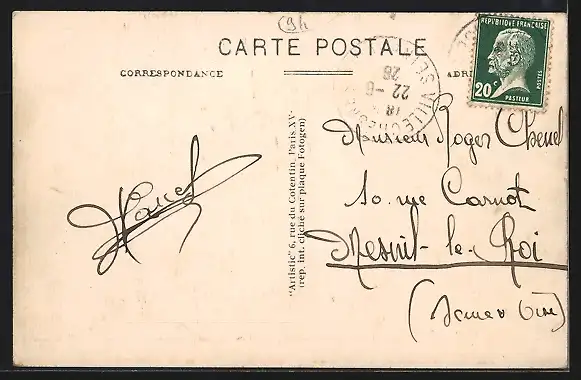 94
CARTE POSTALE
CORRESPONDANCE
ADR
RÉPUBLIQUE FRANÇAISE
POSTES
20c
PASTEUR
VILLECRESNES
18
22-6
26
"Artistic" 6, rue du Cotentin, Paris XV-
(rep. int. cliché sur plaque Fotogen)
Monsieur Roger Chenel
10 rue Carnot
Mesnil-le-Roi
(Seine & Oise)